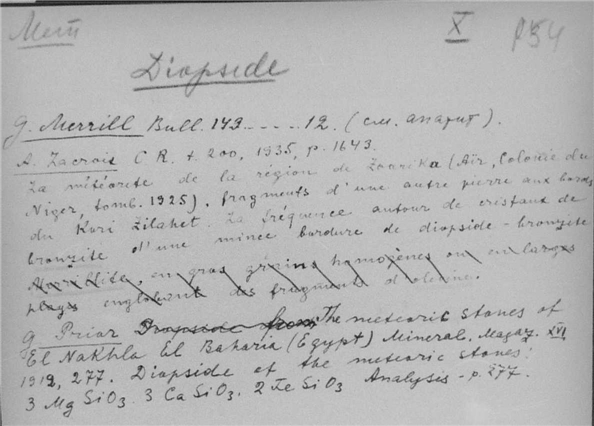 X
Diopside
G. Merrill Bull. 149 - - - - 12. (см. апатит).
A. Lacroix C R. t. 200, 1935, p. 1643.
La météorete de la région de Zoarika (Air, Colonie du
Niger, tomb. 1925). fragments d'une autre pierre aux bords
du Kori Zilahet. La fréquence autour de cristaux de
bronzite d'une mince bordure de diopside-bronzite
Merrillite, en gros grains homogènes ou en larges
plages englobant des fragments d'olivine.
G Prior Diopside from The meteoric stones of
El Nakhla El Baharia (Egypt) Mineral. Magaz. XVI,
1912, 277. Diopside of the meteoric stones:
3 Mg SiO3. 3 Ca SiO3. 2 Fe SiO3 Analysis - p. 277.